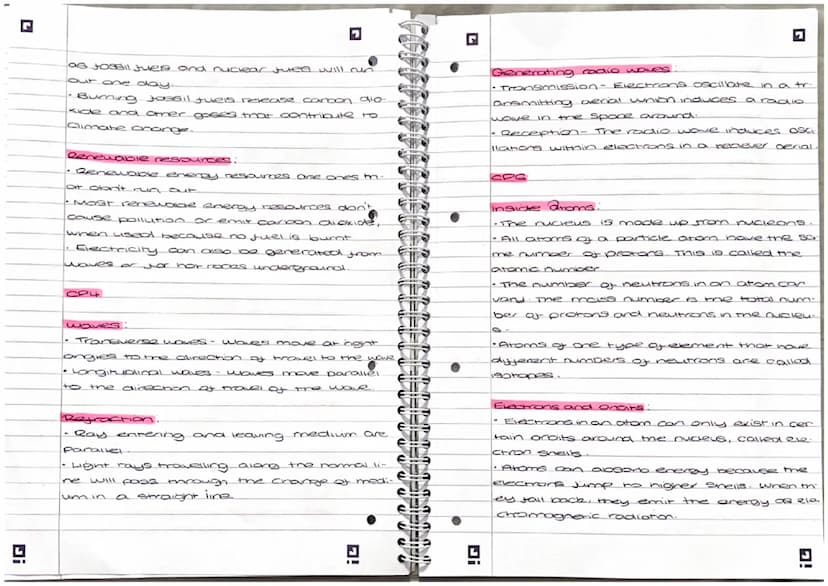 as fossil fuels and nuclear fuels will run
out one day.
• Burning fossil fuels release carbon dio-
xide and other gases that contribute to
climate change.
Renewable resources:
• Renewable energy resources are ones th-
at don't run out
• Most renewable energy resources don't
cause pollution or emit carbon dioxide,
when used because no fuel is burnt
• Electricity can also be generated from
waves or for hot rocks underground.
CP4
Waves:
• Transverse waves - waves move at right
angles to the direction of travel to the wave
• Longitudinal waves - waves move parallel
to the direction of travel of the wave
Refraction:
• Ray entering and leaving medium are
parallel.
• Light rays travelling along the normal li-
ne will pass through the change of medi-
um in a straight line
Generating radio waves:
• Transmission - Electrons oscillate in a tr-
ansmitting aerial which induces a radio
wave in the space around.
• Reception - The radio wave induces osci-
llations within electrons in a reciever aerial.
CP6
Inside atoms:
• The nucleus is made up from nucleons.
• All atoms of a particle atom have the sa-
me number of protons. This is called the
atomic number
• The number of neutrons in an atom can
vary. The mass number is the total num-
ber of protons and neutrons in the nucleu-
s.
• Atoms of one type of element that have
different numbers of neutrons are called
isotopes.
Electrons and orbits:
• Electrons in an atom can only exist in cer-
tain orbits around the nucleus, called ele-
ctron shells.
• Atoms can energy because the
electrons jump to higher shells. When th-
ey fall back, they emit the energy as ele-
ctromagnetic radiation.